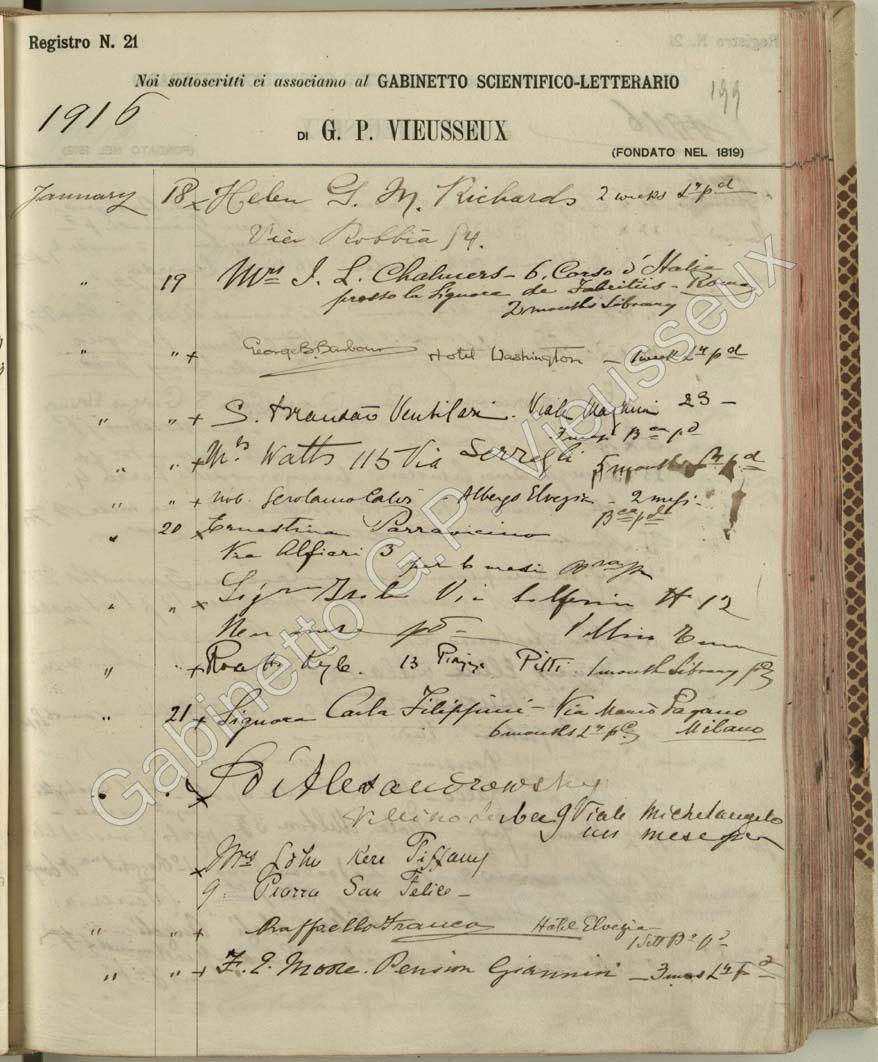 Registro N. 21
Noi sottoscritti ci associamo al GABINETTO SCIENTIFICO-LETTERARIO
199
1916
DI G. P. VIEUSSEUX
(FONDATO NEL 1819)
January 18 x Helen G. M. Richards 2 weeks Lry pd
Via Robbia 54.
" 19 Mrs J. L. Chalmers - 6. Corso d'Italia
presso la Signora de Fabritiis - Roma
2 months Library
" " + George B. Barbour Hotel Washington - 1 week Lry pd
" " + S. Ventileri. Viale 23 -
3 mesi Bca pd
" " + Mrs Watts 115 Via Serragli 5 months Lry pd
" " + nob. Gerolamo Calvi - Albergo Elvezia - 2 mesi -
Bca pd
" 20 x Ernestina Parravicino
Via Alfieri 3 per 6 mesi
" " x Sigra Via Solferino No 12
pd
" " + Kyle. 13 Piazza Pitti. 1 month Library pd
" 21 + Signora Carla Filippini - Via Mario Pagano
6 months Lry pd Milano
" " x D'Alexandrowsky
Villino 9 Viale Michelangelo
un mese
x Mrs John Kerr Tiffany
9. Piazza San Felice -
" " + Raffaello Franco Hotel Elvezia
1 Sett Ba pd
" " + F. E. Moore. Pension Giannini - 3 mos Lry pd
Gabinetto G.P. Vieusseux